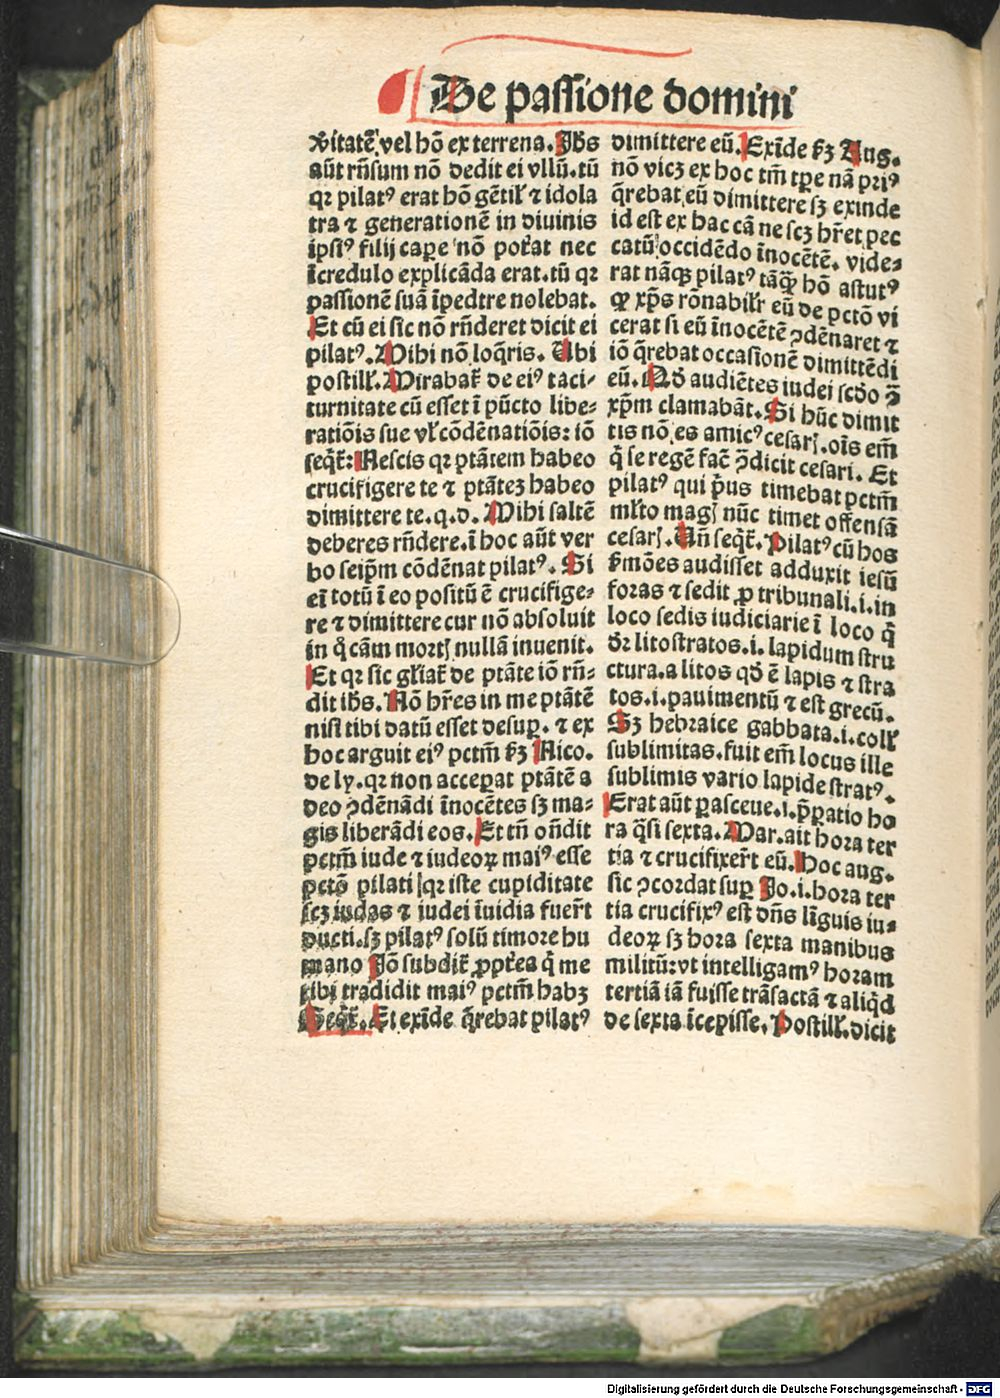 De passione domini
v̾itatē vel hō ex terrena. Jhs
aūt rn̄sum nō dedit ei vllū. tū
qꝛ pilatꝰ erat hō gētil' ⁊ idola
tra ⁊ generationē in diuinis
ipsiꝰ filij cape nō pot̄at nec
īcredulo explicāda erat. tū qꝛ
passionē suā īpedire nolebat.
Et cū ei sic nō rn̄deret dicit ei
pilatꝰ. Mihi nō loq̄ris. Vbi
postill'. Mirabat̄ de eiꝰ taci-
turnitate cū esset ī pūcto libe-
ratiōis sue vl' cōdēnatiōis: iō
seq̄t̄: Nescis qꝛ ptātem habeo
crucifigere te ⁊ ptāteꝫ habeo
dimittere te. q. d. Mihi saltē
deberes rn̄dere. ī hoc aūt ver
bo seip̄m cōdēnat pilatꝰ. Si
eī totū ī eo positū ē crucifige-
re ⁊ dimittere cur nō absoluit
in q̊ cām mortꝭ nullā inuenit.
Et qꝛ sic gl'iat̄ de ptāte iō rn̄-
dit ihs. Nō hr̄es in me ptātē
nisi tibi datū esset desuꝑ. ⁊ ex
hoc arguit eiꝰ pctm̄ ẜꝫ Nico.
de ly. qꝛ non acceꝑat ptātē a
deo ꝯdēnādi īnocētes sꝫ ma-
gis liberādi eos. Et tn̄ on̄dit
pctm̄ iude ⁊ iudeoꝝ maiꝰ esse
pctō pilati qꝛ iste cupiditate
scꝫ iudas ⁊ iudei īuidia fuer̄t
ducti. sꝫ pilatꝰ solū timore hu
mano Jō subdit̄ ꝓpt̄ea q̇ me
tibi tradidit maiꝰ pctm̄ habꝫ
Seq̄t̄. Et exīde q̄rebat pilatꝰ
dimittere eū. Exīde ẜꝫ Aug.
nō vicꝫ ex hoc tm̄ tꝑe nā priꝰ
q̄rebat eū dimittere sꝫ exinde
id est ex hac cā ne scꝫ hr̄et pec
catū occidēdo īnocētē. vide-
rat nāqꝫ pilatꝰ tāq̄ꝫ hō astutꝰ
ꝙ xp̄s rōnabilr̄ eū de pctō vi
cerat si eū īnocētē ꝯdēnaret ⁊
iō q̄rebat occasionē dimittēdi
eū. Qd̄ audiētes iudei scd̄o ꝯ̄
xp̄m clamabāt. Si hūc dimit
tis nō es amicꝰ cesarꝭ. oīs em̄
q̇ se regē fac̄ ꝯ̄dicit cesari. Et
pilatꝰ qui p̄us timebat pctm̄
ml'to magꝭ nūc timet offensā
cesarꝭ. Vn̄ seq̄t̄. Pilatꝰ cū hos
ẜmōes audisset adduxit iesū
foras ⁊ sedit ꝓ tribunali. i. in
loco sedis iudiciarie ī loco q̇
dr̄ litostratos. i. lapidum stru
ctura. a litos qd̄ ē lapis ⁊ stra
tos. i. pauimentū ⁊ est grecū.
Sꝫ hebraice gabbata. i. coll'
sublimitas. fuit em̄ locus ille
sublimis vario lapide stratꝰ.
Erat aūt ꝑasceue. i. p̄ꝑatio ho
ra q̄si sexta. Mar. ait hora ter
tia ⁊ crucifixer̄t eū. Hoc aug.
sic ꝯcordat suꝑ Jo. i. hora ter
tia crucifixꝰ est dn̄s līguis iu-
deoꝝ sꝫ hora sexta manibus
militū: vt intelligamꝰ horam
tertiā iā fuisse trāsactā ⁊ aliq̇d
de sexta īcepisse. Postill'. dicit
Digitalisierung gefördert durch die Deutsche Forschungsgemeinschaft - DFG